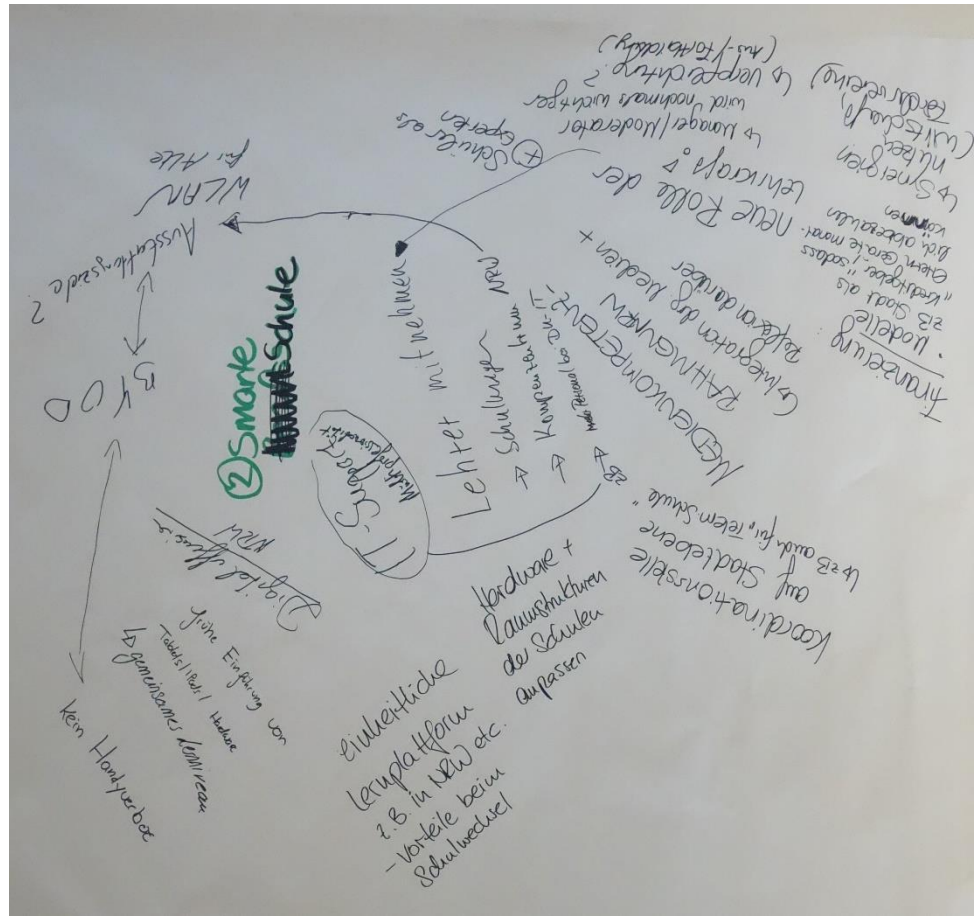 ② Smarte
Schule
IT-Support
Lehrer mitnehmen
→ Schulungen
→ Kompetenzteam NRW
→ zB
Schüler als
Experten
WLAN
für Alle
Ausstattungsziele?
BYOD
kein Handyverbot
Digitaloffensive
NRW
frühe Einführung von
Tablets/IPads/Hardware
↳ gemeinsames Lernniveau
einheitliche
Lernplattform
z.B. in NRW etc.
- Vorteile beim
Schulwechsel
Hardware +
Raumstrukturen
der Schulen
anpassen
Koordinationsstelle
auf Stadtebene
↳ zB auch für "Telem Schule"
MEDIENKOMPETENZ-
RAHMEN NRW
↳ Integration dig Medien +
Reflexion darüber
neue Rolle der
Lehrkraft?
↳ Manager/Moderator
wird nochmals wichtiger
↳ Verpflichtung?
(Aus-/Fortbildung)
Finanzierung
• Modelle:
zB Stadt als
"Kreditgeber", sodass
Eltern Geräte monat-
lich abbezahlen
können
↳ Synergien
nutzen
(Wirtschaft,
Fördervereine)